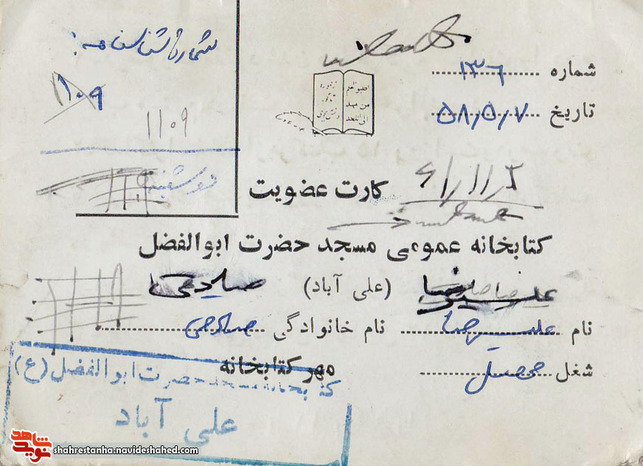 شماره ۱۳۶
تاریخ ۵۸/۵/۷
شماره شناسنامه:
۱۱۰۹
۱۱۰۹
اطلبو العلم من مهد الی اللحد
۶۱/۱۱/۲
کارت عضویت
کتابخانه عمومی مسجد حضرت ابوالفضل
علیرضا (علی آباد) صادقی
نام علیرضا نام خانوادگی صادقی
شغل محصل مهر کتابخانه
کتابخانه مسجد حضرت ابوالفضل (ع)
علی آباد
نوید شاهد
shahrestanha.navideshahed.com